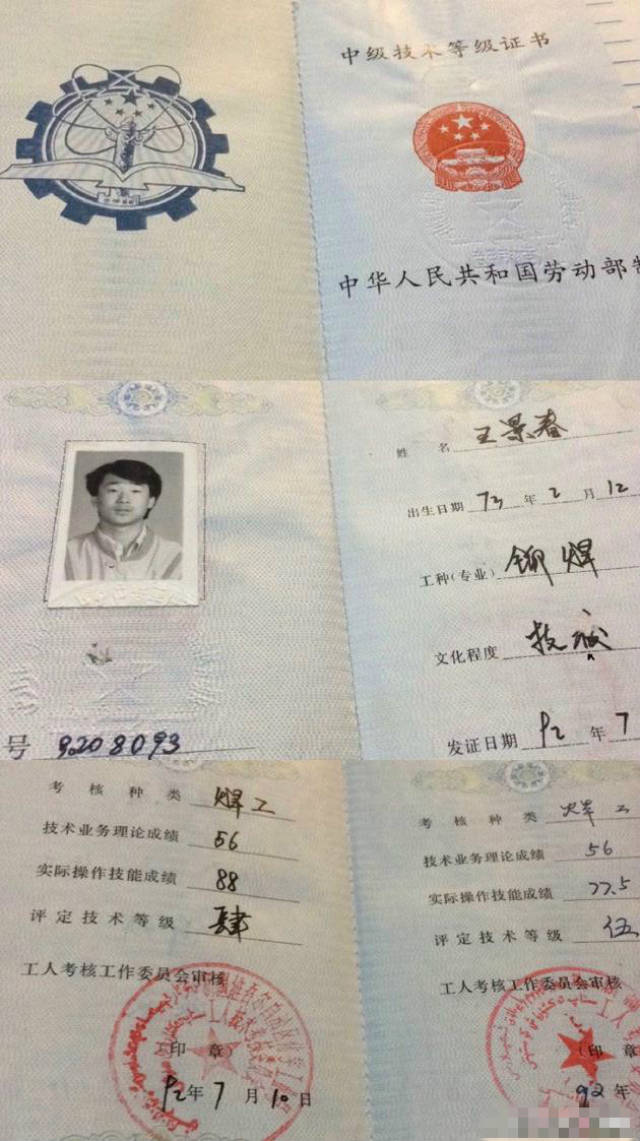 中级技术等级证书
中华人民共和国劳动部制
姓名 王景春
出生日期 73 年 2 月 12
工种(专业) 铆焊
文化程度 技校
发证日期 92 年 7
号 9208093
考核种类 焊工
技术业务理论成绩 56
实际操作技能成绩 88
评定技术等级 肆
工人考核工作委员会审核
(印章)
92年 7 月 10 日
考核种类 焊工
技术业务理论成绩 56
实际操作技能成绩 77.5
评定技术等级 伍
工人考核工作委员会审核
(印章
92 年